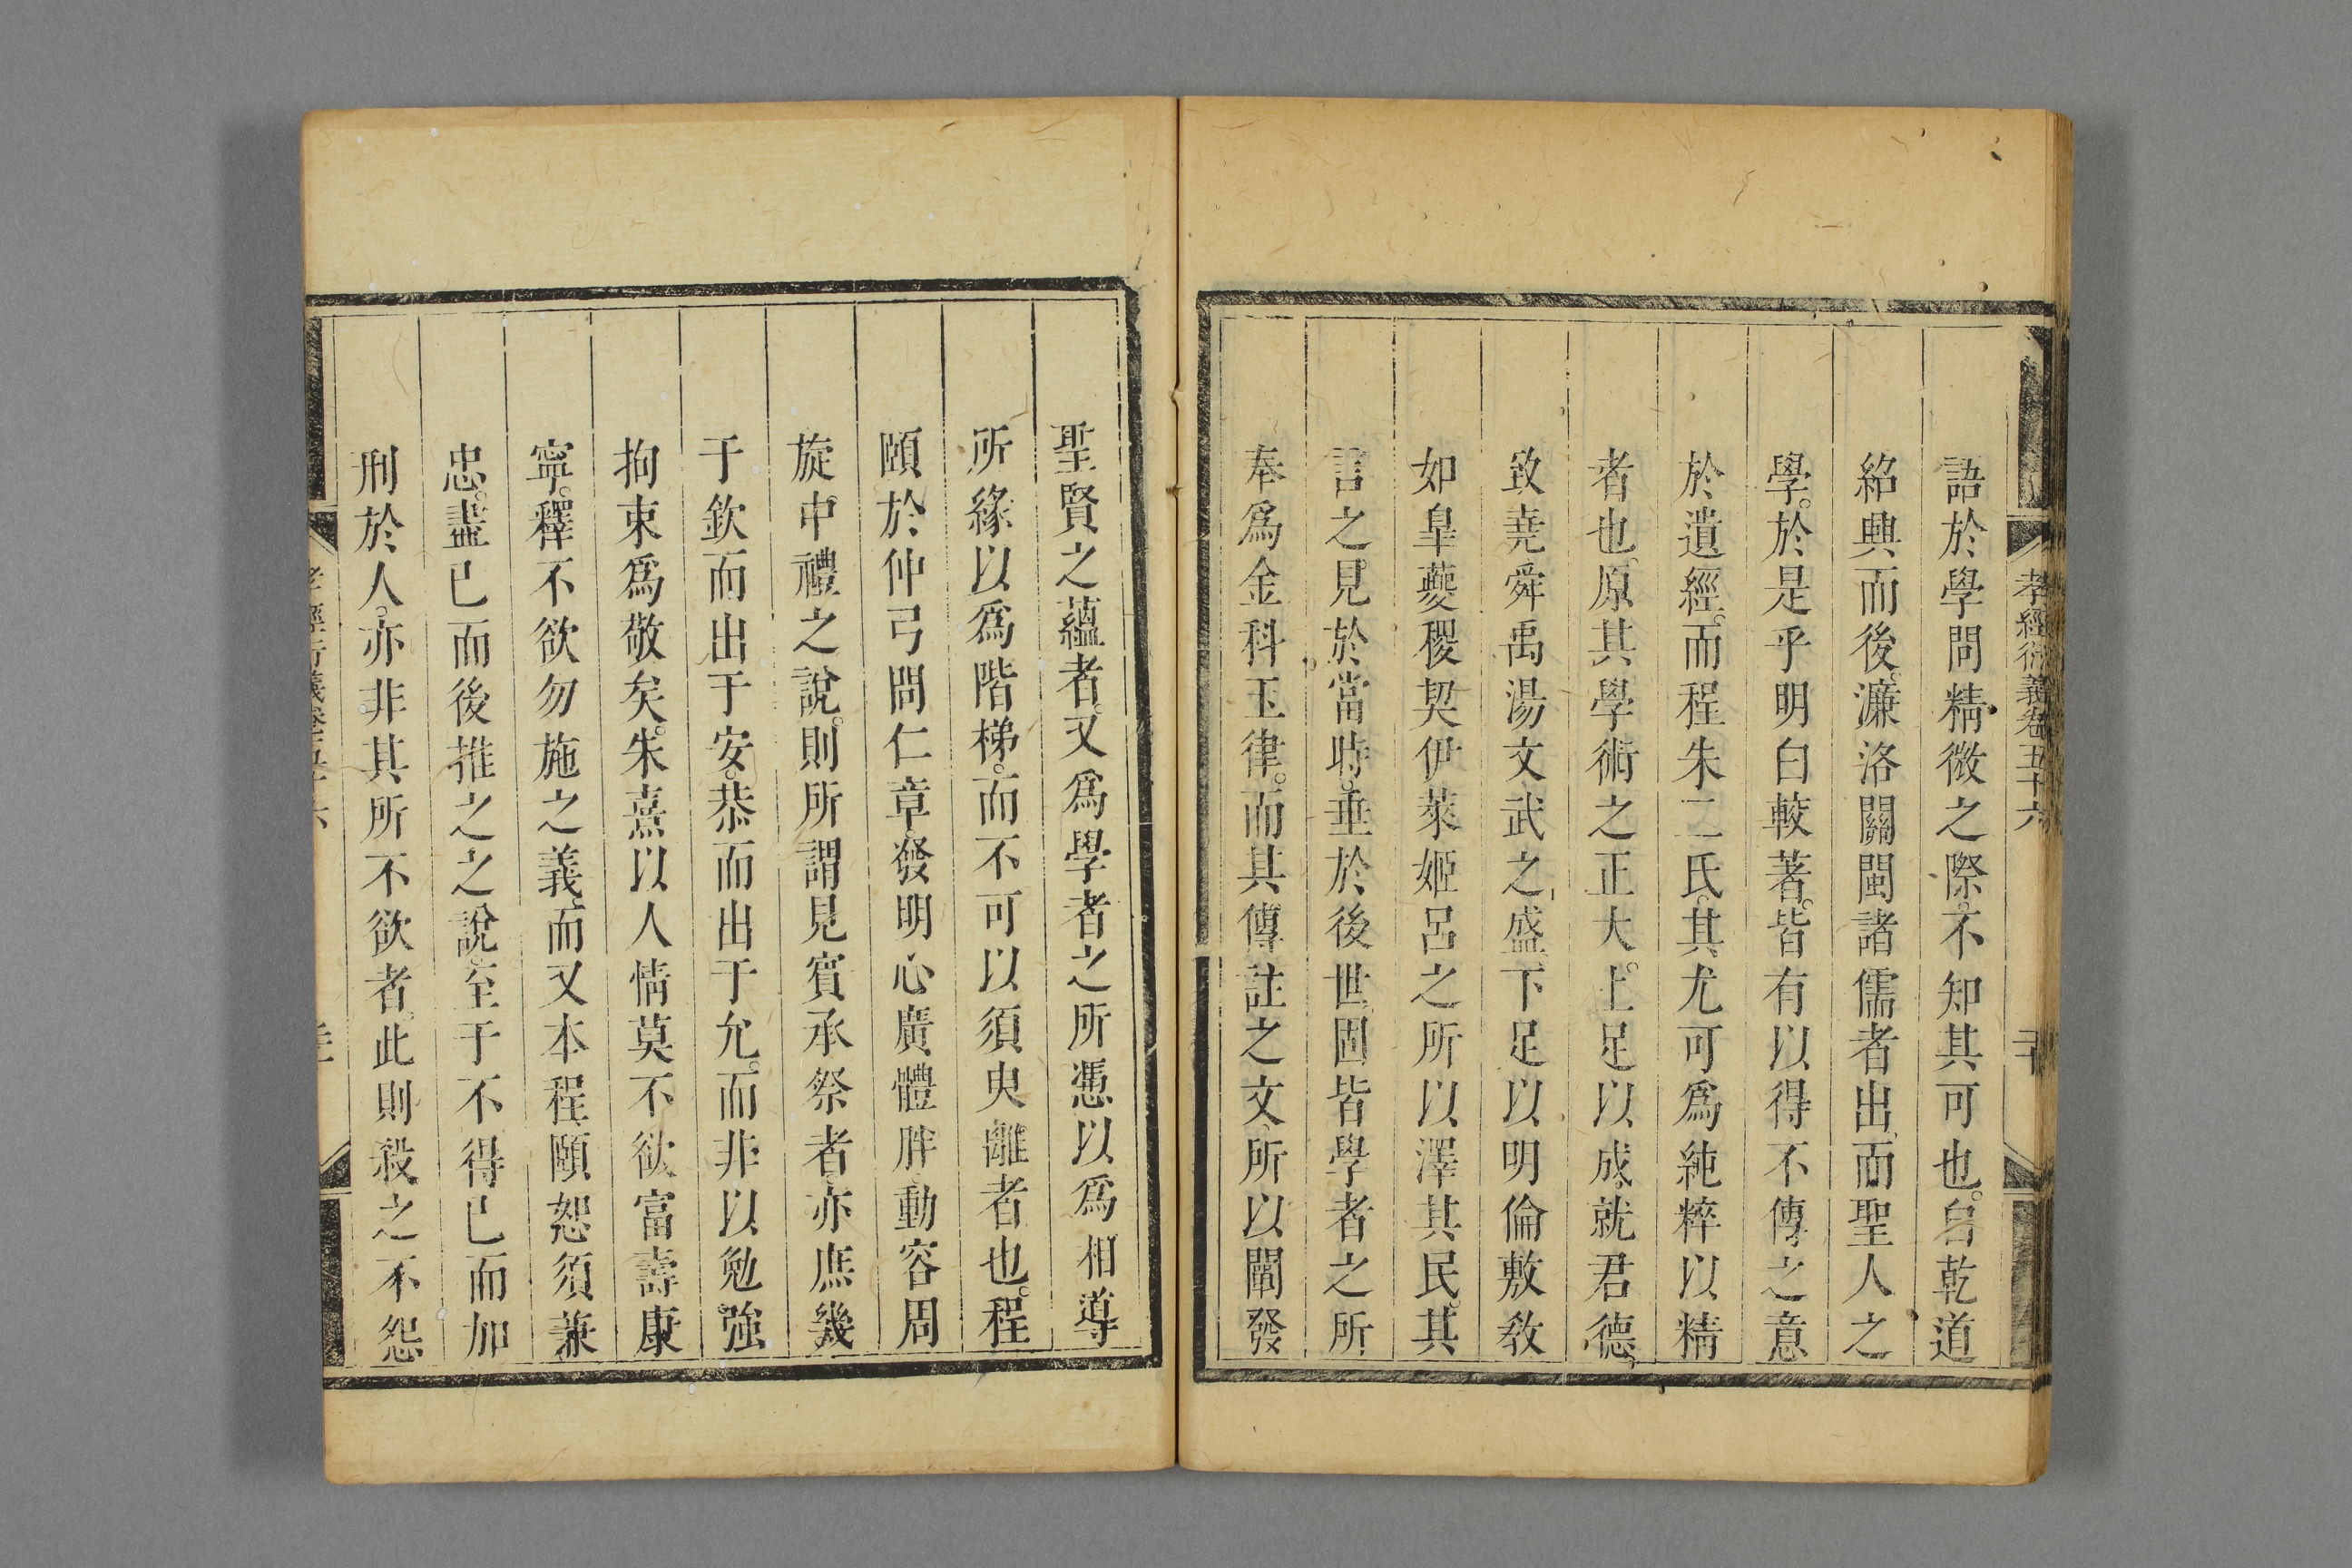 孝經衍義卷五十六
二十
語於學問精微之際。不知其可也。自乾道
紹興而後。濂洛關閩諸儒者出。而聖人之
學。於是乎明白較著。皆有以得不傳之意
於遺經。而程朱二氏。其尤可爲純粹以精
者也。原其學術之正大。上足以成就君德。
致堯舜禹湯文武之盛。下足以明倫敷敎
如臯夔稷契伊萊姬呂之所以澤其民。其
言之見於當時。垂於後世。固皆學者之所
奉爲金科玉律。而其傳註之文。所以闡發
聖賢之蘊者。又爲學者之所憑以爲相導
所緣以爲階梯。而不可以須臾離者也。程
頤於仲弓問仁章。發明心廣體胖。動容周
旋。中禮之說。則所謂見賓承祭者。亦庶幾
于欽而出于安。恭而出于允。而非以勉強
拘束爲敬矣。朱熹以人情莫不欲富壽康
寧。釋不欲勿施之義。而又本程頤恕須兼
忠。盡已而後推之之說。至于不得已而加
刑於人。亦非其所不欲者。此則殺之不怨
孝經衍義卷五十六